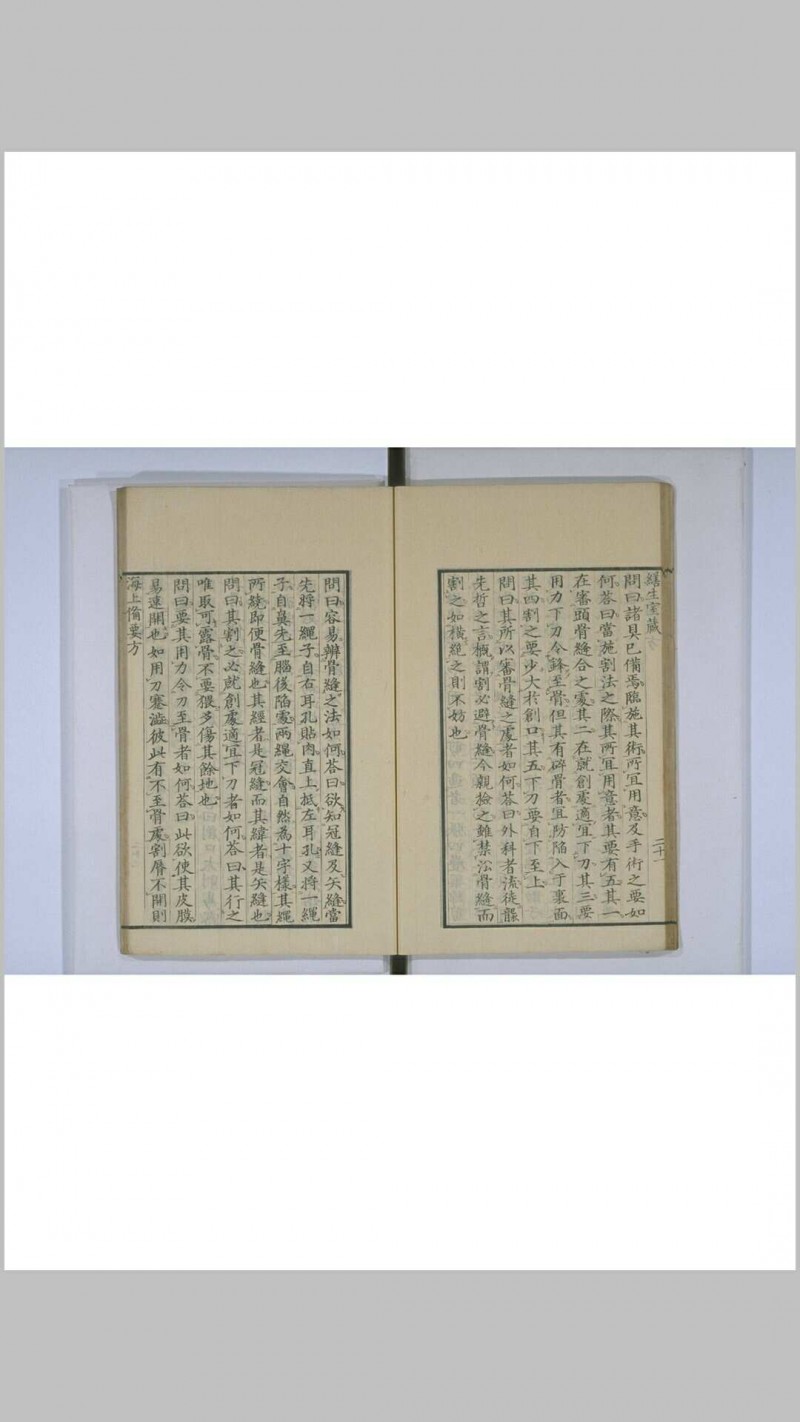 繕生室藏
二十一
問曰諸具已備焉臨施其術所宜用意及手術之要如
何荅曰當施割法之際其所宜用意者其要有五其一
在審頭骨縫合之處其二在就創處適宜下刀其三要
用力下刀令鋒至骨但其有碎骨者宜防陷入于裏面
其四割之要少大於創口其五下刀要自下至上
問曰其所以審骨縫之處者如何荅曰外科者流徒
先哲之言概謂割必避骨縫今親檢之雖禁沿骨縫而
割之如橫繩之則不妨也
問曰容易辨骨縫之法如何荅曰欲知冠縫及矢縫當
先將一繩子自右耳孔貼肉直上抵左耳孔又將一繩
子自鼻尖至腦後陷處兩繩交會自然為十字樣其繩
所繞即便骨縫也其經者是冠縫而其緯者是矢縫也
問曰其割之必就創處適宜下刀者如何荅曰其行之
唯取可露骨不要猥多傷其餘地也
問曰要其用力令刀至骨者如何荅曰此欲使其皮膜
易速開也如用刀蹇澁彼此有不至骨處割脣不開則
海上備要方